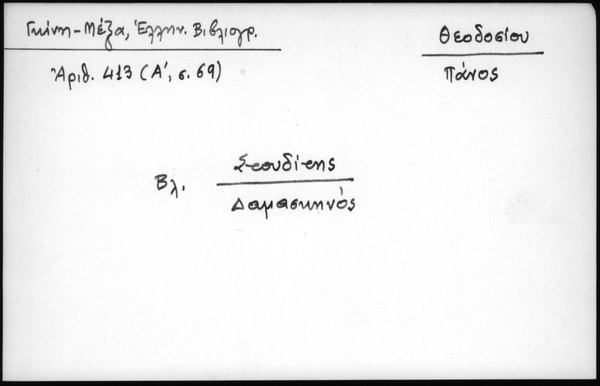 Γκίνη-Μέξα, Ἑλλην. Βιβλιογρ.
Ἀριθ. 413 (Α', σ. 69)
Θεοδοσίου
Πάνος
Βλ. Στουδίτης
Δαμασκηνὸς